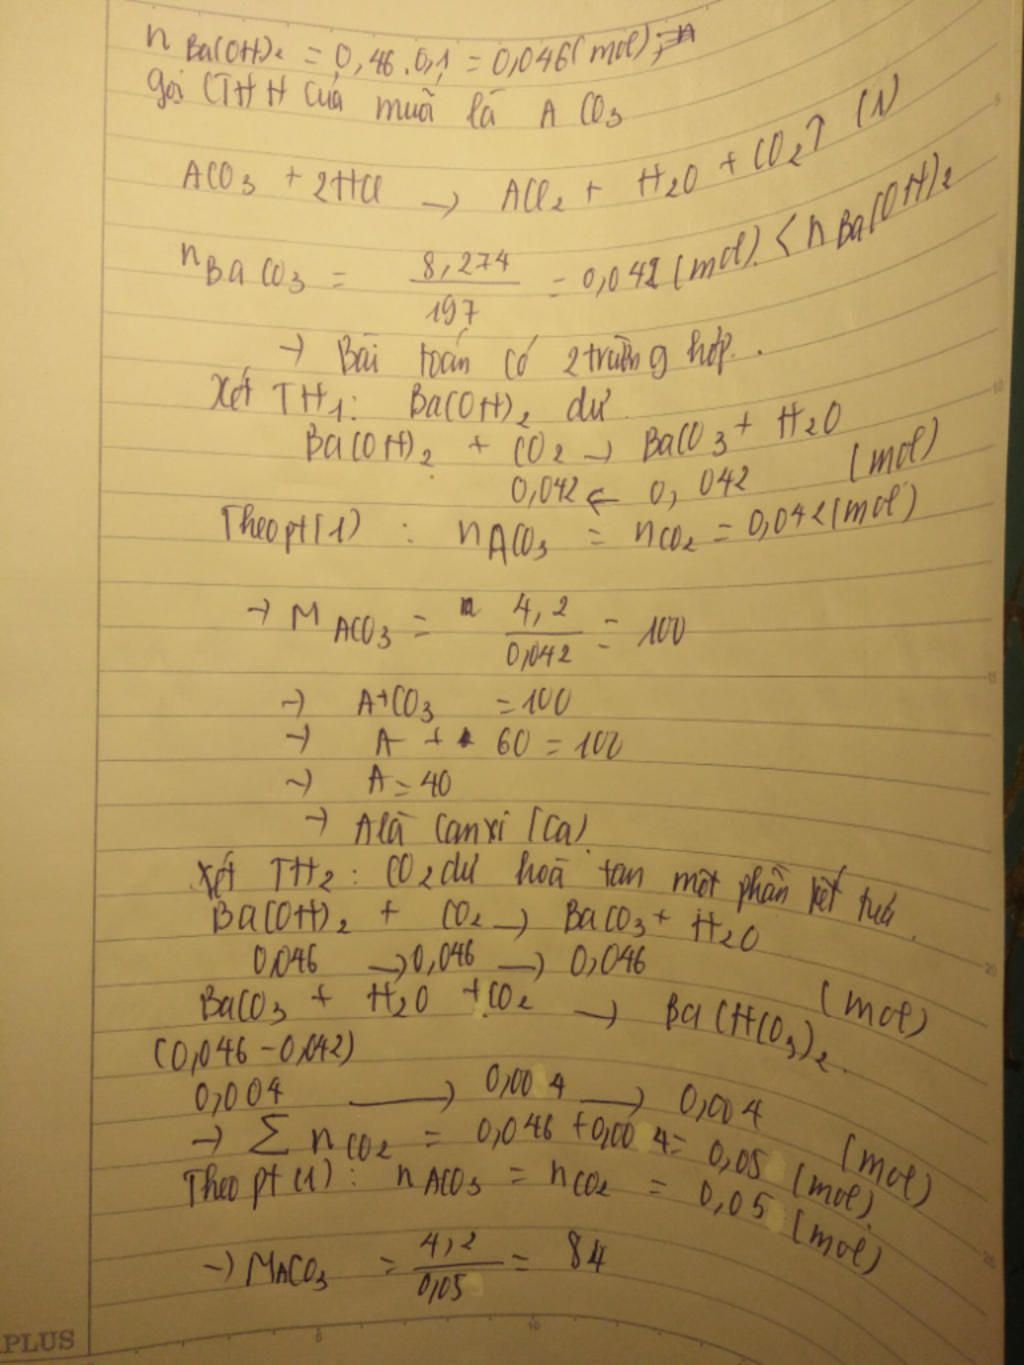 n Ba(OH)₂ = 0,46.0,1 = 0,046(mol);
gọi CTHH của muối là ACO₃
ACO₃ + 2HCl → ACl₂ + H₂O + CO₂↑ (1)
n BaCO₃ = 8,274/197 = 0,042 (mol) < n Ba(OH)₂
→ Bài toán có 2 trường hợp.
Xét TH₁: Ba(OH)₂ dư.
Ba(OH)₂ + CO₂ → BaCO₃ + H₂O
0,042 ← 0,042 (mol)
Theo pt(1) : n ACO₃ = n CO₂ = 0,042(mol)
→ M ACO₃ = 4,2/0,042 = 100
→ A+CO₃ = 100
→ A + 60 = 100
→ A = 40
→ A là Canxi (Ca)
Xét TH₂: CO₂ dư hoà tan một phần kết tủa.
Ba(OH)₂ + CO₂ → BaCO₃ + H₂O
0,046 → 0,046 → 0,046 (mol)
BaCO₃ + H₂O + CO₂ → Ba(HCO₃)₂.
(0,046-0,042)
0,004 → 0,004 → 0,004 (mol)
→ Σ n CO₂ = 0,046 + 0,004 = 0,05 (mol)
Theo pt(1): n ACO₃ = n CO₂ = 0,05 (mol)
→ M ACO₃ = 4,2/0,05 = 84
PLUS
5
10
15
20
25
5
10